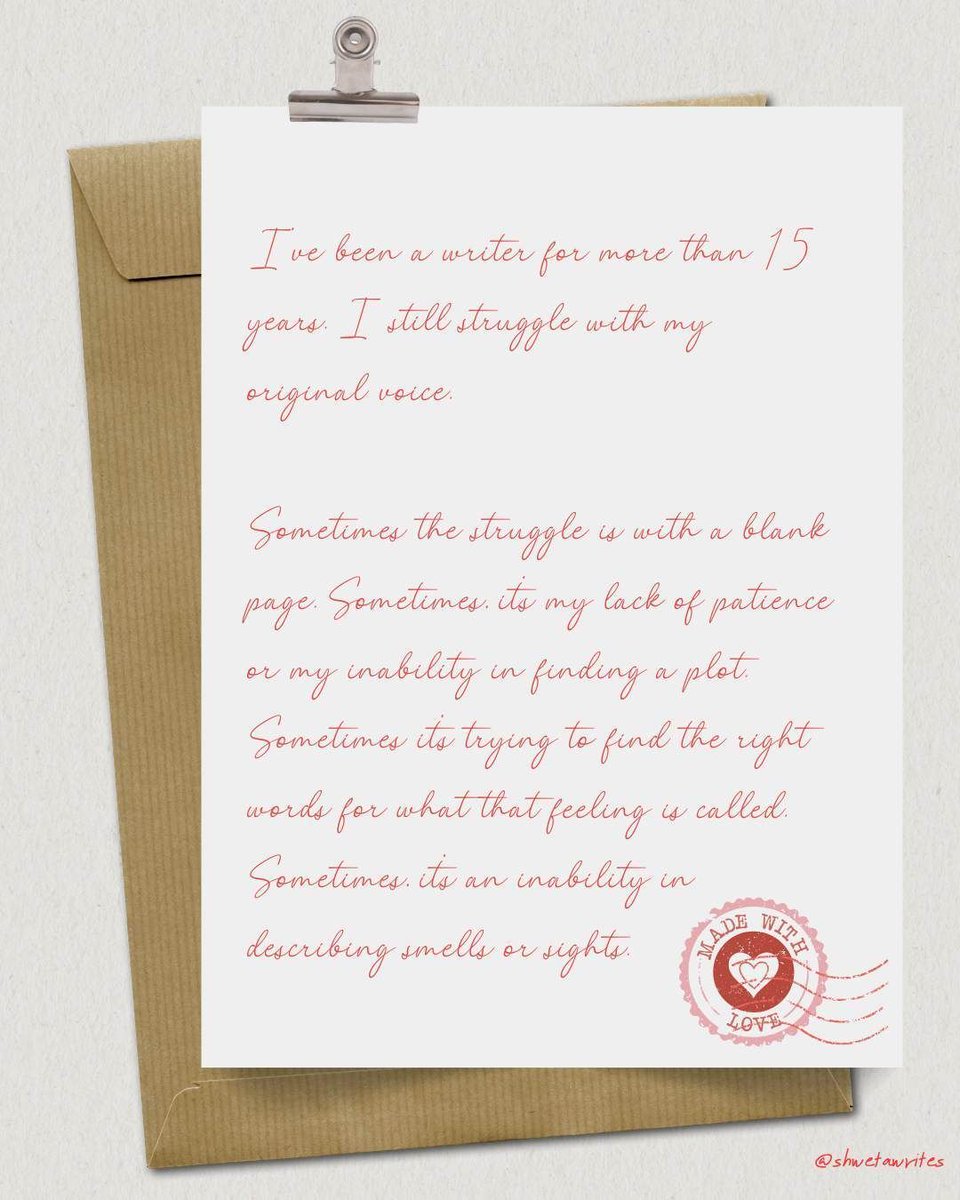 I've been a writer for more than 15
years. I still struggle with my
original voice.
Sometimes the struggle is with a blank
page. Sometimes, it's my lack of patience
or my inability in finding a plot.
Sometimes it's trying to find the right
words for what that feeling is called.
Sometimes, it's an inability in
describing smells or sights.
MADE WITH
LOVE
@shwetawrites